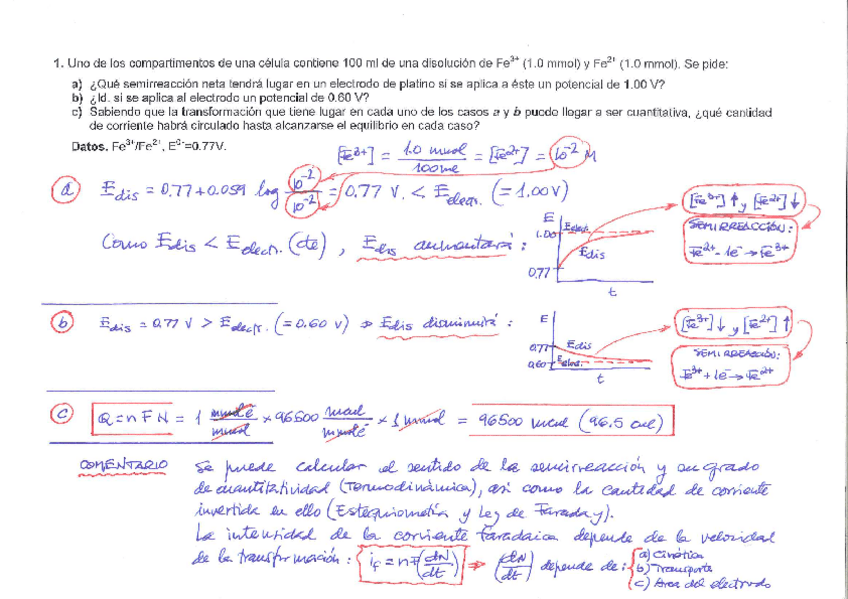 1. Uno de los compartimentos de una célula contiene 100 ml de una disolución de Fe³⁺ (1.0 mmol) y Fe²⁺ (1.0 mmol). Se pide:
a) ¿Qué semirreacción neta tendrá lugar en un electrodo de platino si se aplica a éste un potencial de 1.00 V?
b) ¿Id. si se aplica al electrodo un potencial de 0.60 V?
c) Sabiendo que la transformación que tiene lugar en cada uno de los casos a y b puede llegar a ser cuantitativa, ¿qué cantidad
de corriente habrá circulado hasta alcanzarse el equilibrio en cada caso?
Datos. Fe³⁺/Fe²⁺, E⁰'=0.77V.
[Fe³⁺] = 1.0 mmol / 100 ml = [Fe²⁺] = 10⁻² M
a) E dis = 0.77 + 0.059 log 10⁻² / 10⁻² = 0.77 V. < E electr. (= 1.00 V)
Como E dis < E electr. (cte), E dis aumentará:
E
1.00
E electr.
E dis
0.77
t
[Fe³⁺] ↑ y [Fe²⁺] ↓
SEMIRREACCIÓN:
Fe²⁺ - 1e⁻ → Fe³⁺
b) E dis = 0.77 V > E electr. (= 0.60 V) ⇒ E dis disminuirá:
E
0.77
E dis
0.60
E electr.
t
[Fe³⁺] ↓ y [Fe²⁺] ↑
SEMIRREACCIÓN:
Fe³⁺ + 1e⁻ → Fe²⁺
c) Q = n F N = 1 mmol é / mmol × 96500 mcul / mmol é × 1 mmol = 96500 mcul (96.5 cul)
COMENTARIO
Se puede calcular el sentido de la semirreacción y su grado
de cuantitatividad (Termodinámica), así como la cantidad de corriente
invertida en ello (Estequiometía y Ley de Faraday).
La intensidad de la corriente faradaica depende de la velocidad
de la transformación: i f = n F (dN/dt) ⇒ (dN/dt) depende de:
a) Cinética
b) Transporte
c) Area del electrodo